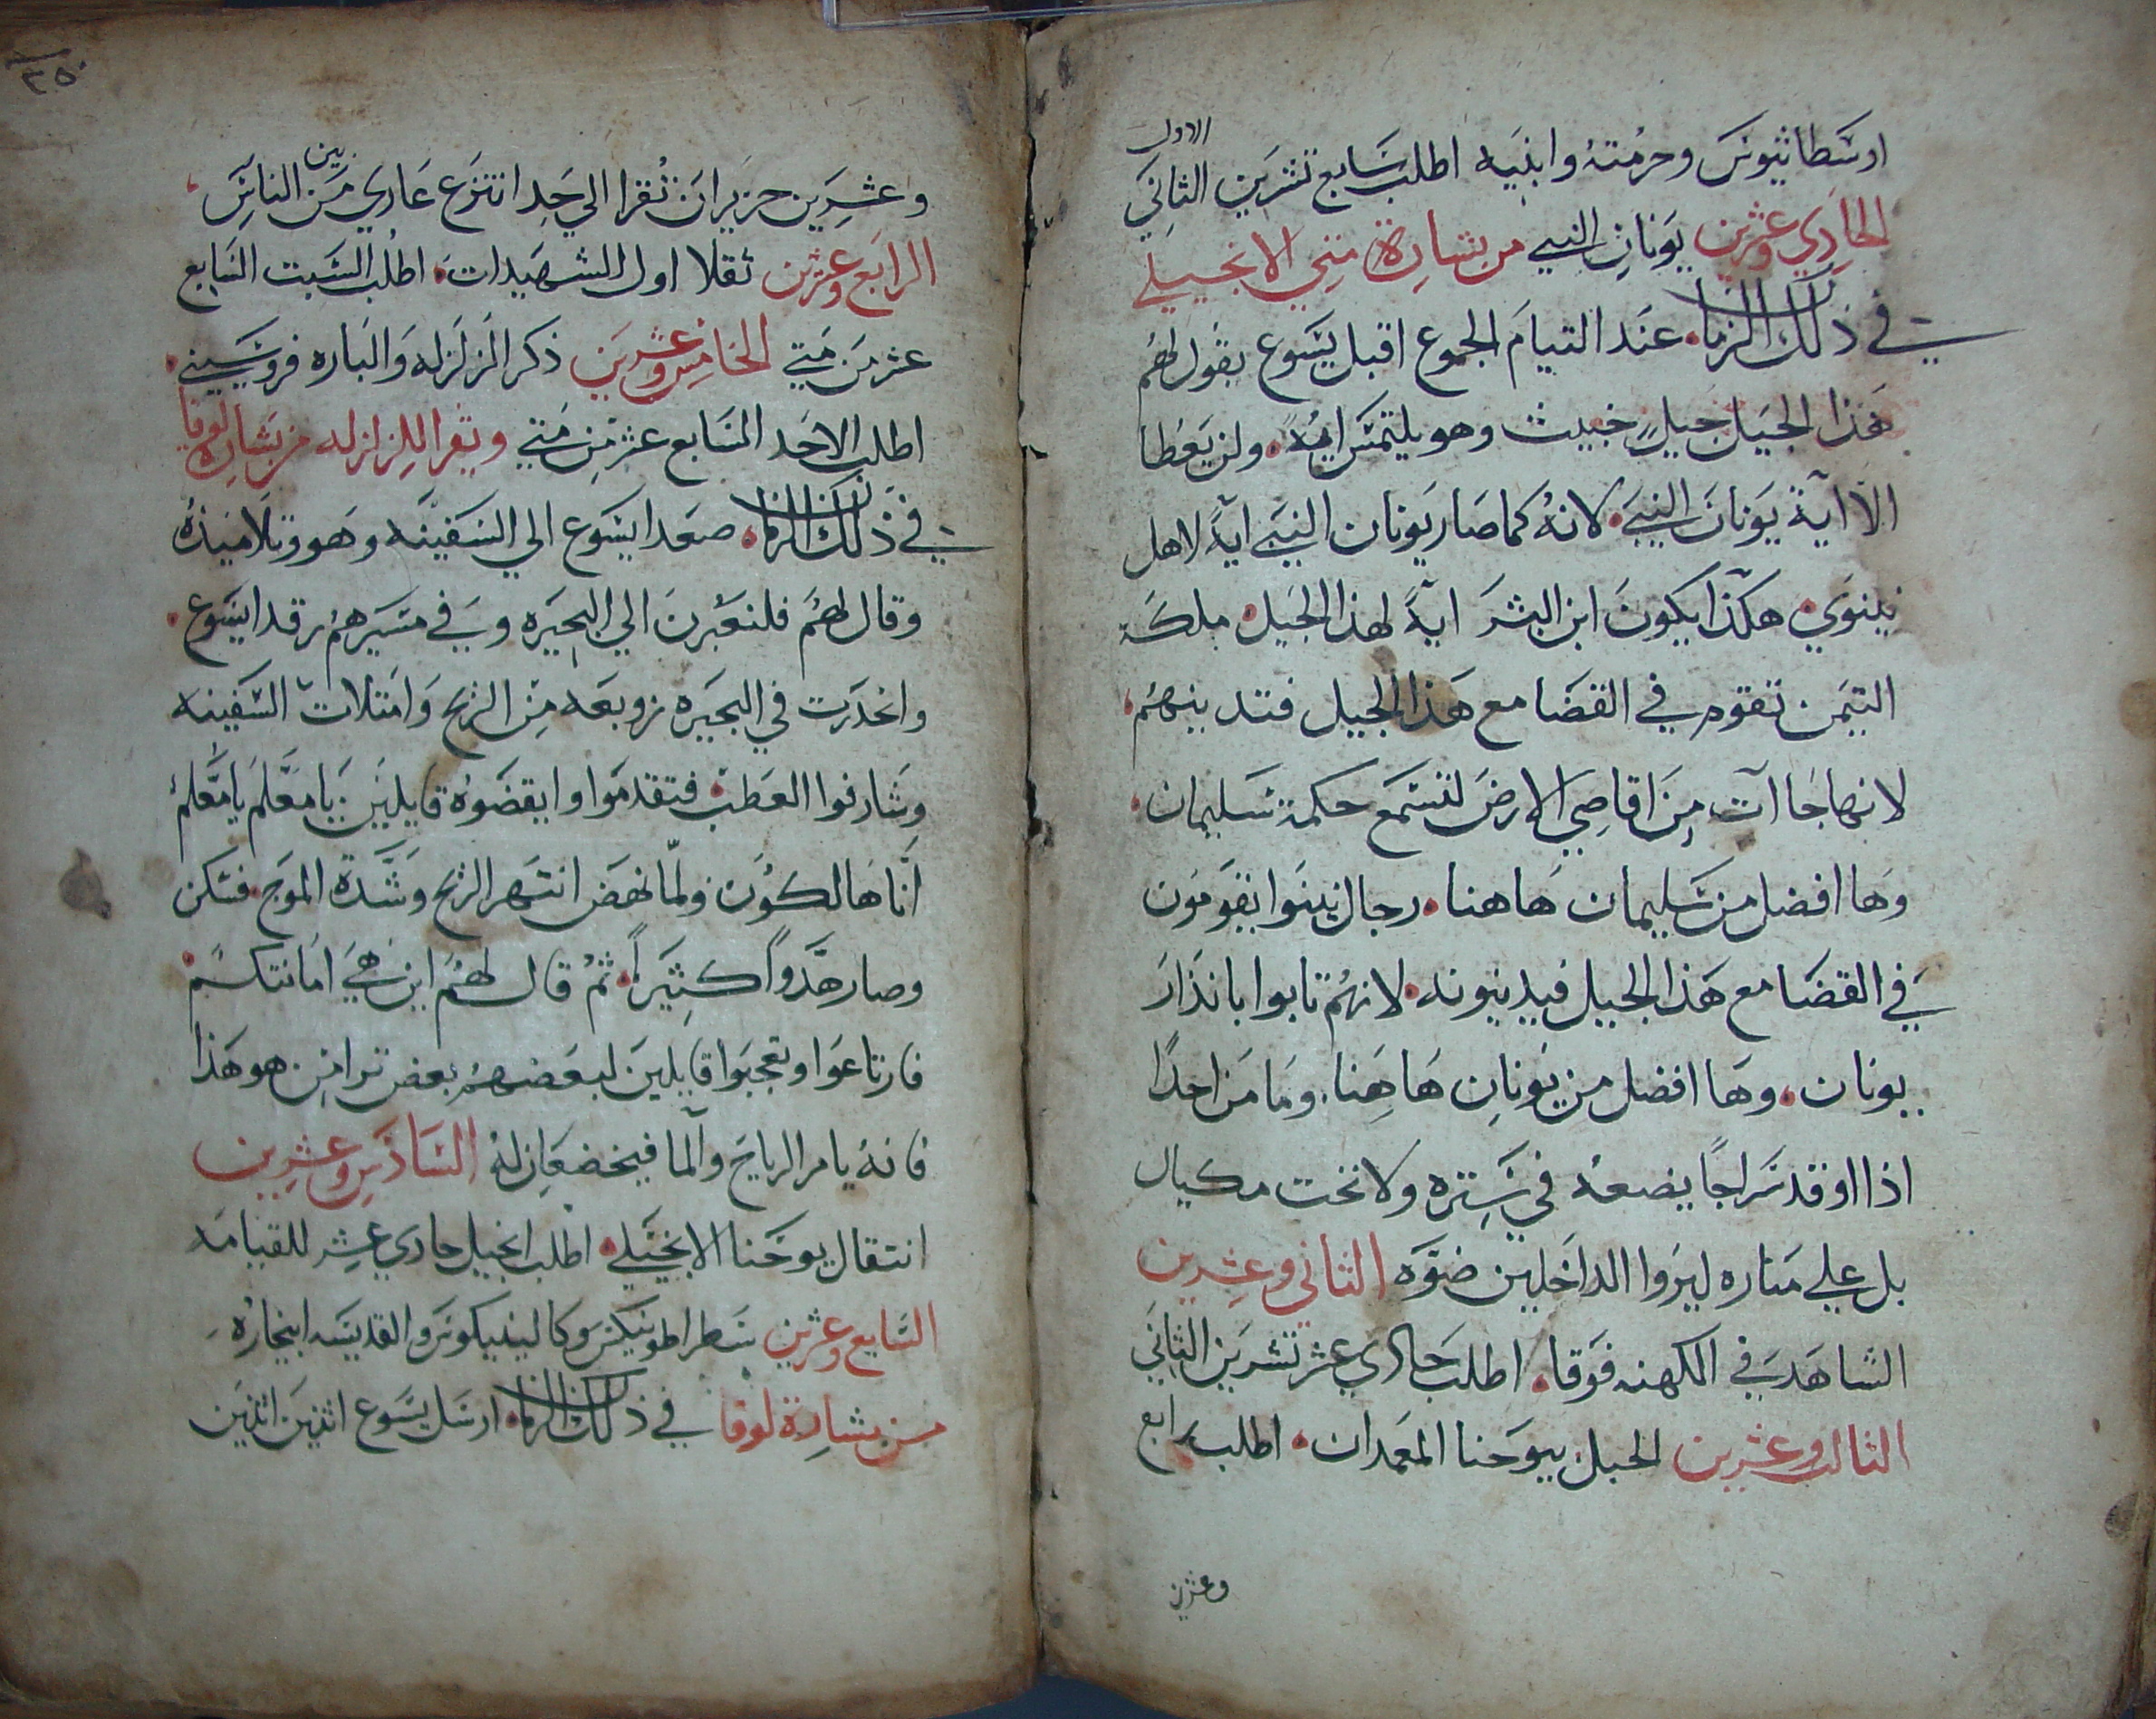 الاول
اوسطاثيوس وحرمته وابنيه اطلب سابع تشرين الثاني
الحادي وعشرين يونان النبي من بشارة متي الانجيلي
في ذلك الزمان عند التيام الجموع اقبل يسوع يقول لهم
هذا الجيل جيل خبيث وهو يلتمس ايه ولن يعطا
الا آية يونان النبي لانه كما صار يونان النبي اية لاهل
نينوي هكذا يكون ابن البشر اية لهذا الجيل ملكة
التيمن تقوم في القضا مع هذا الجيل فتدينهم
لانها جاات من اقاصي الارض لتسمع حكمة سليمان
وها افضل من سليمان هاهنا رجال نينوا يقومون
في القضا مع هذا الجيل فيدينونه لانهم تابوا بانذار
يونان وها افضل من يونان هاهنا وما من احدا
اذا اوقد سراجا يضعه في ستره ولا تحت مكيال
بل علي مناره ليروا الداخلين ضوه الثاني وعشرين
الشاهد في الكهنه فوقا اطلب حادي عشر تشرين الثاني
الثالث وعشرين الحبل بيوحنا المعمدان اطلب رابع
وعشرين
٢٥٠
وعشرين حزيران تقرا الي حد انتزع عاري من بين الناس
الرابع وعشرين ثقلا اول الشهيدات اطلب السبت السابع
عشر من متي الخامس وعشرين ذكر الزلزله والباره فروسيني
اطلب الاحد السابع عشر من متي ويقرا للزلزله من بشارة لوقا
في ذلك الزمان صعد ايسوع الي السفينه وهو وتلاميذه
وقال لهم فلنعبرن الي البحيره وفي مسيرهم رقد ايسوع
وانحدرت في البحيره زوبعه من الريح وامتلات السفينه
وشارفوا العطب فتقدموا وايقضوه قايلين يا معلم يا معلم
اننا هالكون ولما نهض انتهر الريح وشدة الموج فسكن
وصار هدوا كثيرا ثم قال لهم اين هي امانتكم
فارتاعوا وتعجبوا قايلين لبعضهم بعض ترا من هو هذا
فانه يامر الرياح والما فيخضعان له السادس وعشرين
انتقال يوحنا الانجيلي اطلب انجيل حادي عشر للقيامه
السابع وعشرين سطراطونيكس وكالينيكوس والقديسه ابيخاره
من بشارة لوقا في ذلك الزمان ارسل يسوع اثنين اثنين